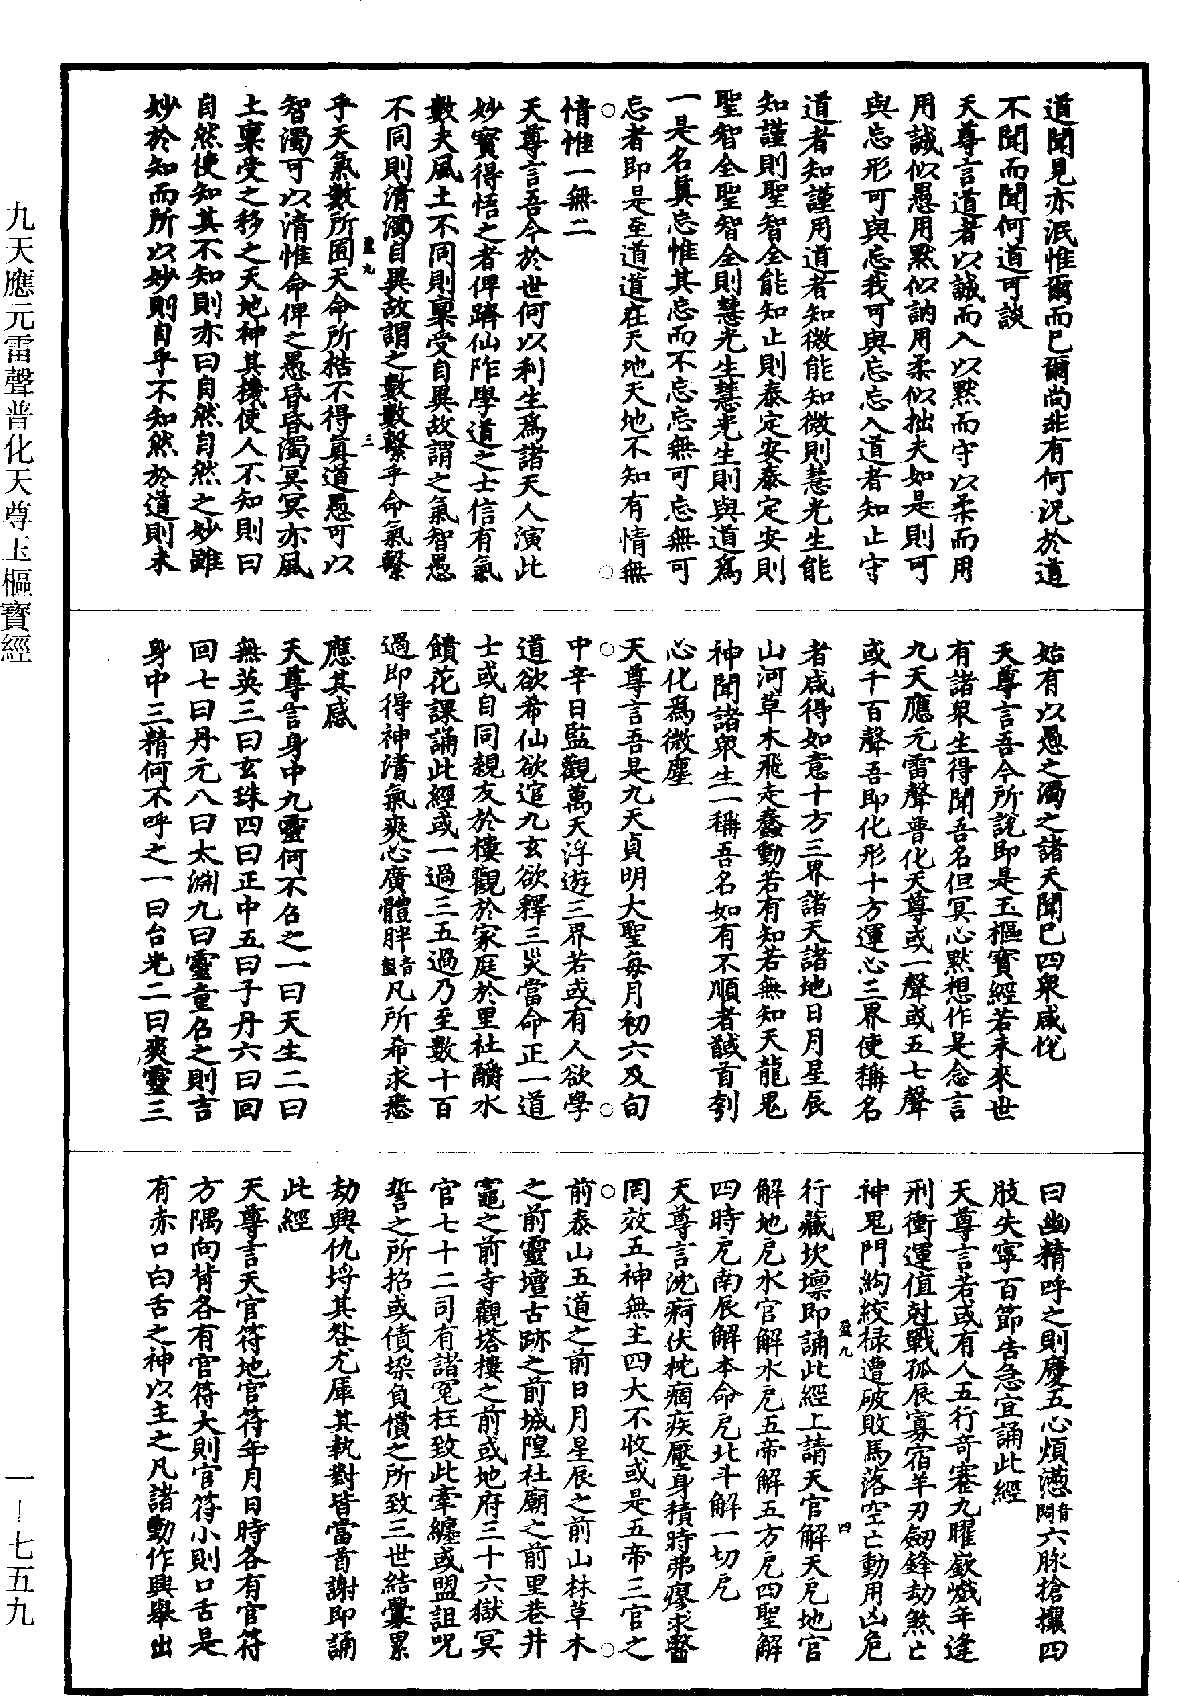 道聞見亦泯惟爾而已爾尚非有何況於道
不聞而聞何道可談
天尊言道者以誠而入以黙而守以柔而用
用誠似愚用黙似訥用柔似拙夫如是則可
與忘形可與忘我可與忘忘入道者知止守
道者知謹用道者知微能知微則慧光生能
知謹則聖智全能知止則泰定安泰定安則
聖智全聖智全則慧光生慧光生則與道為
一是名真忘惟其忘而不忘忘無可忘無可
忘者即是至道道在天地天地不知有情無
情惟一無二
天尊言吾今於世何以利生為諸天人演此
妙寳得悟之者俾躋仙阼學道之士信有氣
數夫風土不同則稟受自異故謂之氣智愚
不同則清濁自異故謂之數數繫乎命氣繫
乎天氣數所囿天命所梏不得真道愚可以
智濁可以清惟命俾之愚昏昏濁冥冥亦風
土稟受之移之天地神其機使人不知則曰
自然使知其不知則亦曰自然自然之妙雖
妙於知而所以妙則自乎不知然於道則未
始有以愚之濁之諸天聞已四衆咸悅
天尊言吾今所說即是玉樞寳經若未來世
有諸衆生得聞吾名但冥心黙想作是念言
九天應元雷聲普化天尊或一聲或五七聲
或千百聲吾即化形十方運心三界使稱名
者咸得如意十方三界諸天諸地日月星辰
山河草木飛走蠢動若有知若無知天龍鬼
神聞諸衆生一稱吾名如有不順者馘首刳
心化為微塵
天尊言吾是九天貞明大聖每月初六及旬
中辛日監觀萬天浮遊三界若或有人欲學
道欲希仙欲逭九玄欲釋三災當命正一道
士或自同親友於樓觀於家庭於里社醮水
饋花課誦此經或一過三五過乃至數十百
過即得神清氣爽心廣體胖音盤凡所希求悉
應其感
天尊言身中九靈何不召之一曰天生二曰
無英三曰玄珠四曰正中五曰子丹六曰回
回七曰丹元八曰太淵九曰靈童召之則吉
身中三精何不呼之一曰台光二曰爽靈三
曰幽精呼之則慶五心煩懣音悶六脉搶攘四
肢失寧百節告急宜誦此經
天尊言若或有人五行奇蹇九曜嶔巇年逢
刑衝運值尅戰孤辰寡宿羊刃劒鋒劫煞亡
神鬼門絇絞祿遭破敗馬落空亡動用凶危
行藏坎壈即誦此經上請天官解天厄地官
解地厄水官解水厄五帝解五方厄四聖解
四時厄南辰解本命厄北斗解一切厄
天尊言沈痾伏枕痼疾壓身積時弗瘳求醫
罔效五神無主四大不收或是五帝三官之
前泰山五道之前日月星辰之前山林草木
之前靈壇古跡之前城隍社廟之前里巷井
竈之前寺觀塔樓之前或地府三十六獄冥
官七十二司有諸寃枉致此牽纏或盟詛呪
誓之所招或債垛負償之所致三世結釁累
劫興仇埒其咎尤厙其執對皆當首謝即誦
此經
天尊言天官符地官符年月日時各有官符
方隅向背各有官符大則官符小則口舌是
有赤口白舌之神以主之凡諸動作興舉出
盈九
三
盈九
四
九天應元雷聲普化天尊玉樞寳經
一—七五九